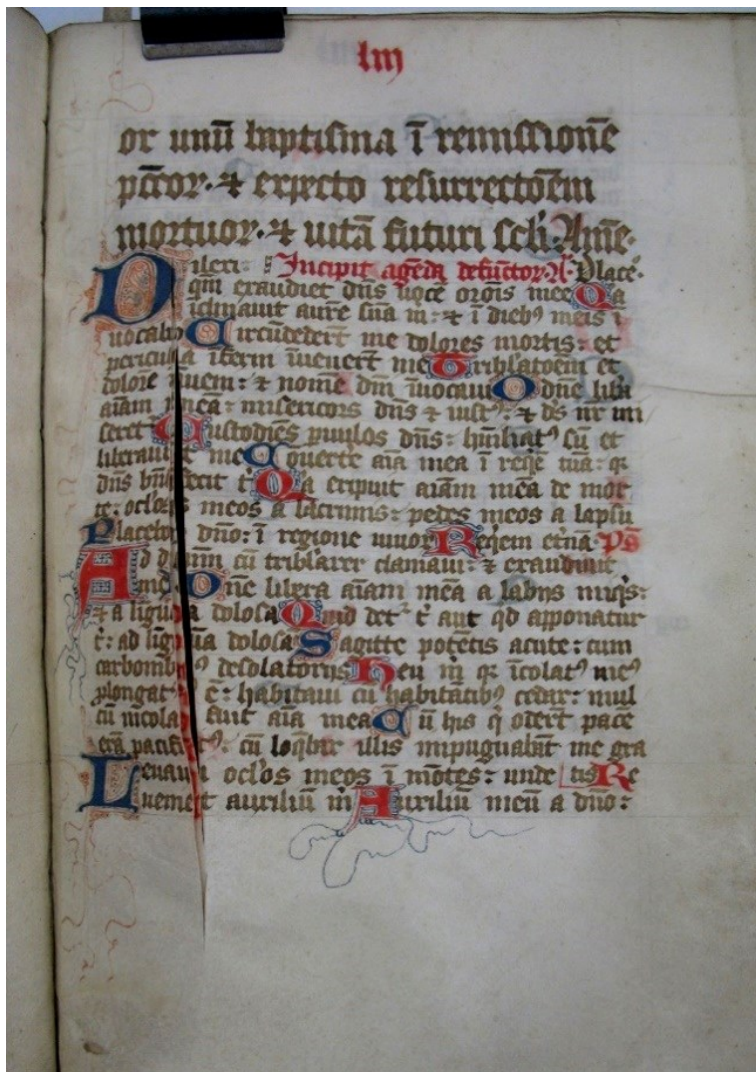 lııȷ
or unū baptisma ī remissionē
pctōꝝ. ⁊ expecto resurrectōem
mortuoꝝ. ⁊ uitā futuri scl̄i. Amē.
Dilexi Incipit agēda defunctoꝝ. A. Placē.
qm̄ exaudiet dn̄s uocē orōnis mee Qa
īclinauit aurē suā m̄: ⁊ ī diebꝰ meis ī
uocabo Circūdedert̄ me dolores mortis: et
pericula īferni īuenert̄ me Tribl̄atōem et
dolorē īueni: ⁊ nomē dn̄i īuocaui O dn̄e lib̄a
aīam meā: misericors dn̄s ⁊ iustꝰ ⁊ ds̄ nr̄ mi
seret Custodiēs puulos dn̄s: hūiliatꝰ sū et
liberauit me Conuerte aīa mea ī reqē tuā: qꝛ
dn̄s bn̄fecit t̄ Qa eripuit aīam meā de mor
te: oclōs meos a lacrimis: pedes meos a lapsu
Placebo dn̄o: ī regione uiuoꝝ Reqiem et̄nā Ps̄
Ad dn̄m cū tribl̄arer clamaui: ⁊ exaudiuit
me Dn̄e libera aīam meā a labiis iniqis:
⁊ a ligua dolosa Quid det̄ t̄ aut qd apponatur
t̄: ad liguā dolosā Sagitte potētis acute: cum
carbonibꝰ desolatoriis Heu m̄ qꝛ īcolatꝰ meꝰ
plongatꝰ ē: habitaui cū habitātibꝰ cedar: mul
tū incola fuit aīa mea Cū his q̄ odert̄ pacē
erā pacificꝰ: cū loq̄bar illis inpugnabāt me gra
Leuaui oclōs meos ī mōtes: unde tis Re
ueniet auxiliū m̄ Auxiliū meū a dn̄o: